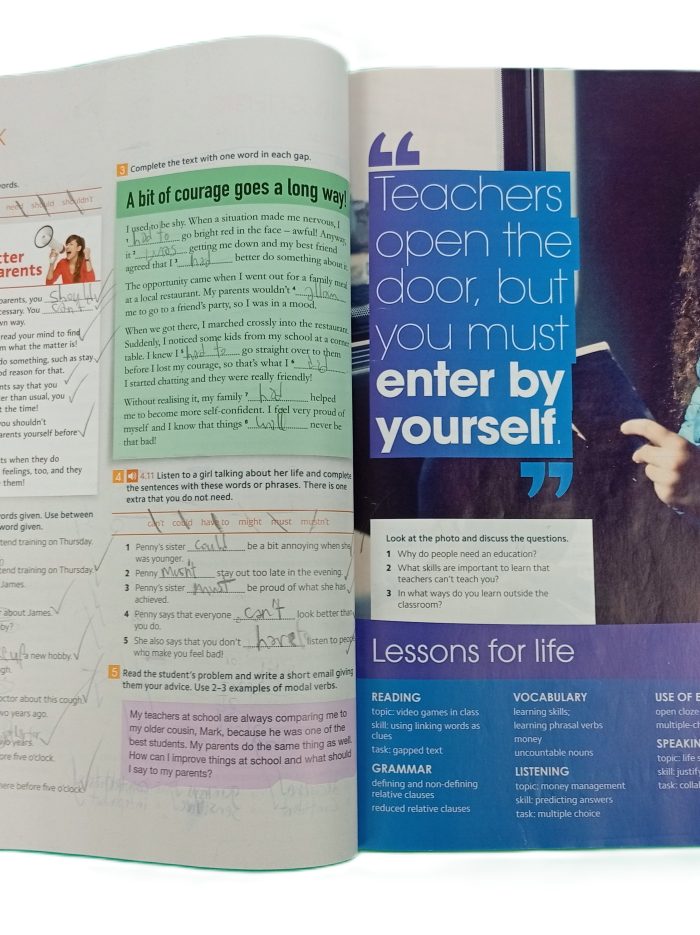 K
ords.
need should shouldn't
tter
parents
parents, you should
cessary. You can't
wn way.
read your mind to find
m what the matter is!
do something, such as stay
od reason for that.
nts say that you
er than usual, you
t the time!
ou shouldn't
arents yourself before
ts when they do
feelings, too, and they
them!
ords given. Use between
word given.
tend training on Thursday.
tend training on Thursday.
James.
about James.
by?
a new hobby.
gh.
octor about this cough.
wo years ago.
two years.
ore five o'clock.
here before five o'clock.
3 Complete the text with one word in each gap.
A bit of courage goes a long way!
I used to be shy. When a situation made me nervous, I
1 had to go bright red in the face – awful! Anyway,
it 2 was getting me down and my best friend
agreed that I 3 had better do something about it.
The opportunity came when I went for a family meal
at a local restaurant. My parents wouldn't 4 allow
me to go to a friend's party, so I was in a mood.
When we got there, I marched crossly into the restaurant.
Suddenly, I noticed some kids from my school at a corner
table. I knew I 5 had to go straight over to them
before I lost my courage, so that's what I 6 did
I started chatting and they were really friendly!
Without realising it, my family 7 had helped
me to become more self-confident. I feel very proud of
myself and I know that things 8 will never be
that bad!
4 4.11 Listen to a girl talking about her life and complete
the sentences with these words or phrases. There is one
extra that you do not need.
can't could have to might must mustn't
1 Penny's sister could be a bit annoying when she
was younger.
2 Penny musnt stay out too late in the evening.
3 Penny's sister must be proud of what she has
achieved.
4 Penny says that everyone can't look better than
you do.
5 She also says that you don't have listen to people
who make you feel bad!
5 Read the student's problem and write a short email giving
them your advice. Use 2–3 examples of modal verbs.
My teachers at school are always comparing me to
my older cousin, Mark, because he was one of the
best students. My parents do the same thing as well.
How can I improve things at school and what should
I say to my parents?
“
Teachers
open the
door, but
you must
enter by
yourself.
”
Look at the photo and discuss the questions.
1 Why do people need an education?
2 What skills are important to learn that
teachers can't teach you?
3 In what ways do you learn outside the
classroom?
Lessons for life
READING
topic: video games in class
skill: using linking words as
clues
task: gapped text
GRAMMAR
defining and non-defining
relative clauses
reduced relative clauses
VOCABULARY
learning skills;
learning phrasal verbs
money
uncountable nouns
LISTENING
topic: money management
skill: predicting answers
task: multiple choice
USE OF E
open cloze
multiple-ch
SPEAKIN
topic: life s
skill: justify
task: collab